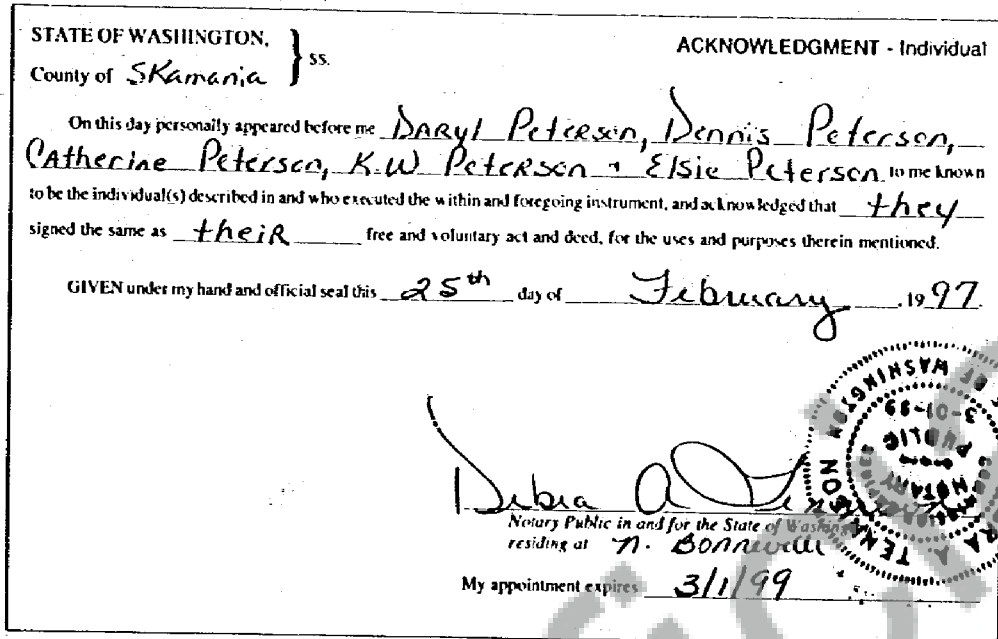 STATE OF WASHINGTON,
ss.
ACKNOWLEDGMENT - Individual
County of SKamania
On this day personally appeared before me DARyl PeteRson, Dennis Peterson,
CAtherine Peterson, K.W PeteRson + Elsie Peterson to me known
to be the individual(s) described in and who executed the within and foregoing instrument, and acknowledged that they
signed the same as theiR free and voluntary act and deed, for the uses and purposes therein mentioned.
GIVEN under my hand and official seal this 25th day of February, 1997.
Debra A
Notary Public in and for the State of Washin
residing at N. Bonneville
My appointment expires 3/1/99
OF WASHINGTON
3-01-99
PUBLIC
NOTARY
RA A. TEN